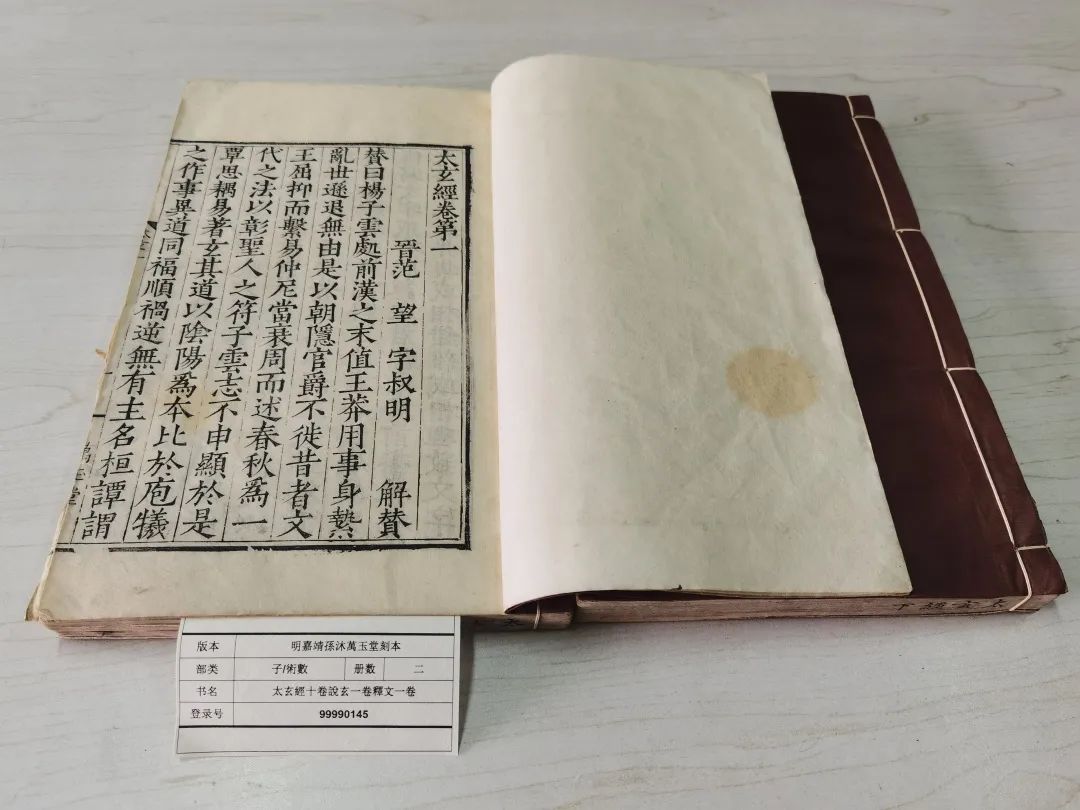 太玄經卷第一
晉范　望　字叔明　解贊
贊曰楊子雲處前漢之末值王莽用事身縶
亂世遜退無由是以朝隱官爵不徙昔者文
王屈抑而繫易仲尼當衰周而述春秋爲一
代之法以彰聖人之符子雲志不申顯於是
覃思耦易著玄其道以陰陽爲本比於庖犧
之作事異道同福順禍逆無有主名桓譚謂
太玄經下
版本 明嘉靖孫沐萬玉堂刻本
部类 子/術數 册数 二
书名 太玄經十卷說玄一卷釋文一卷
登录号 99990145